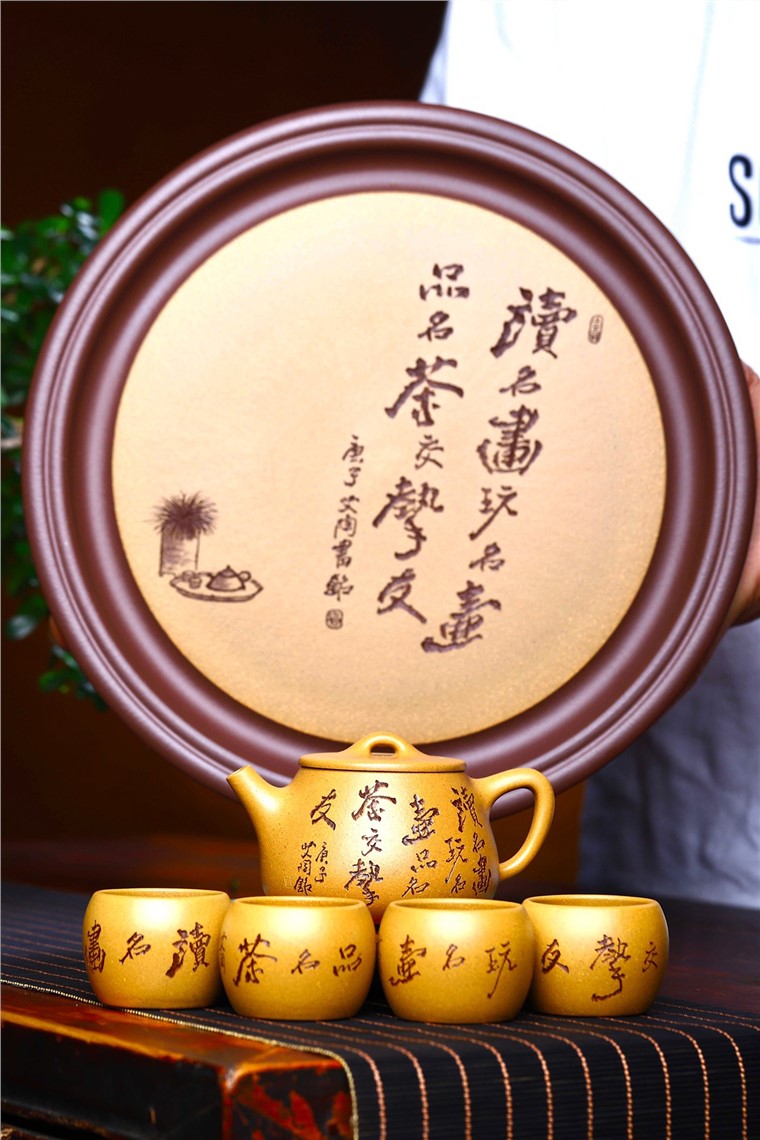 讀名畫玩名壺
品名茶交摯友
庚子艾陶書銘
讀名畫
玩名
壺品名
茶交摯
友
庚子
艾陶銘
讀名畫
品名茶
玩名壺
交摯友